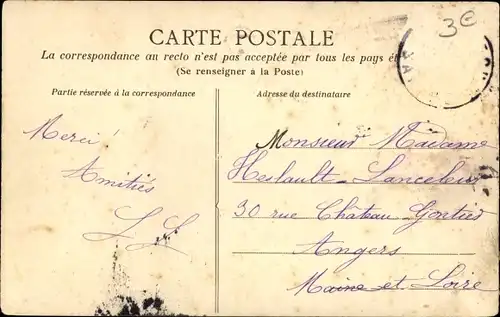 3€
CARTE POSTALE
La correspondance au recto n'est pas acceptée par tous les pays
(Se renseigner à la Poste)
Partie réservée à la correspondance
Adresse du destinataire
Merci!
Amitiés
LL
Monsieur Madame
Heslault-Lanceleur
30 rue Château Gontier
Angers
Maine et Loire